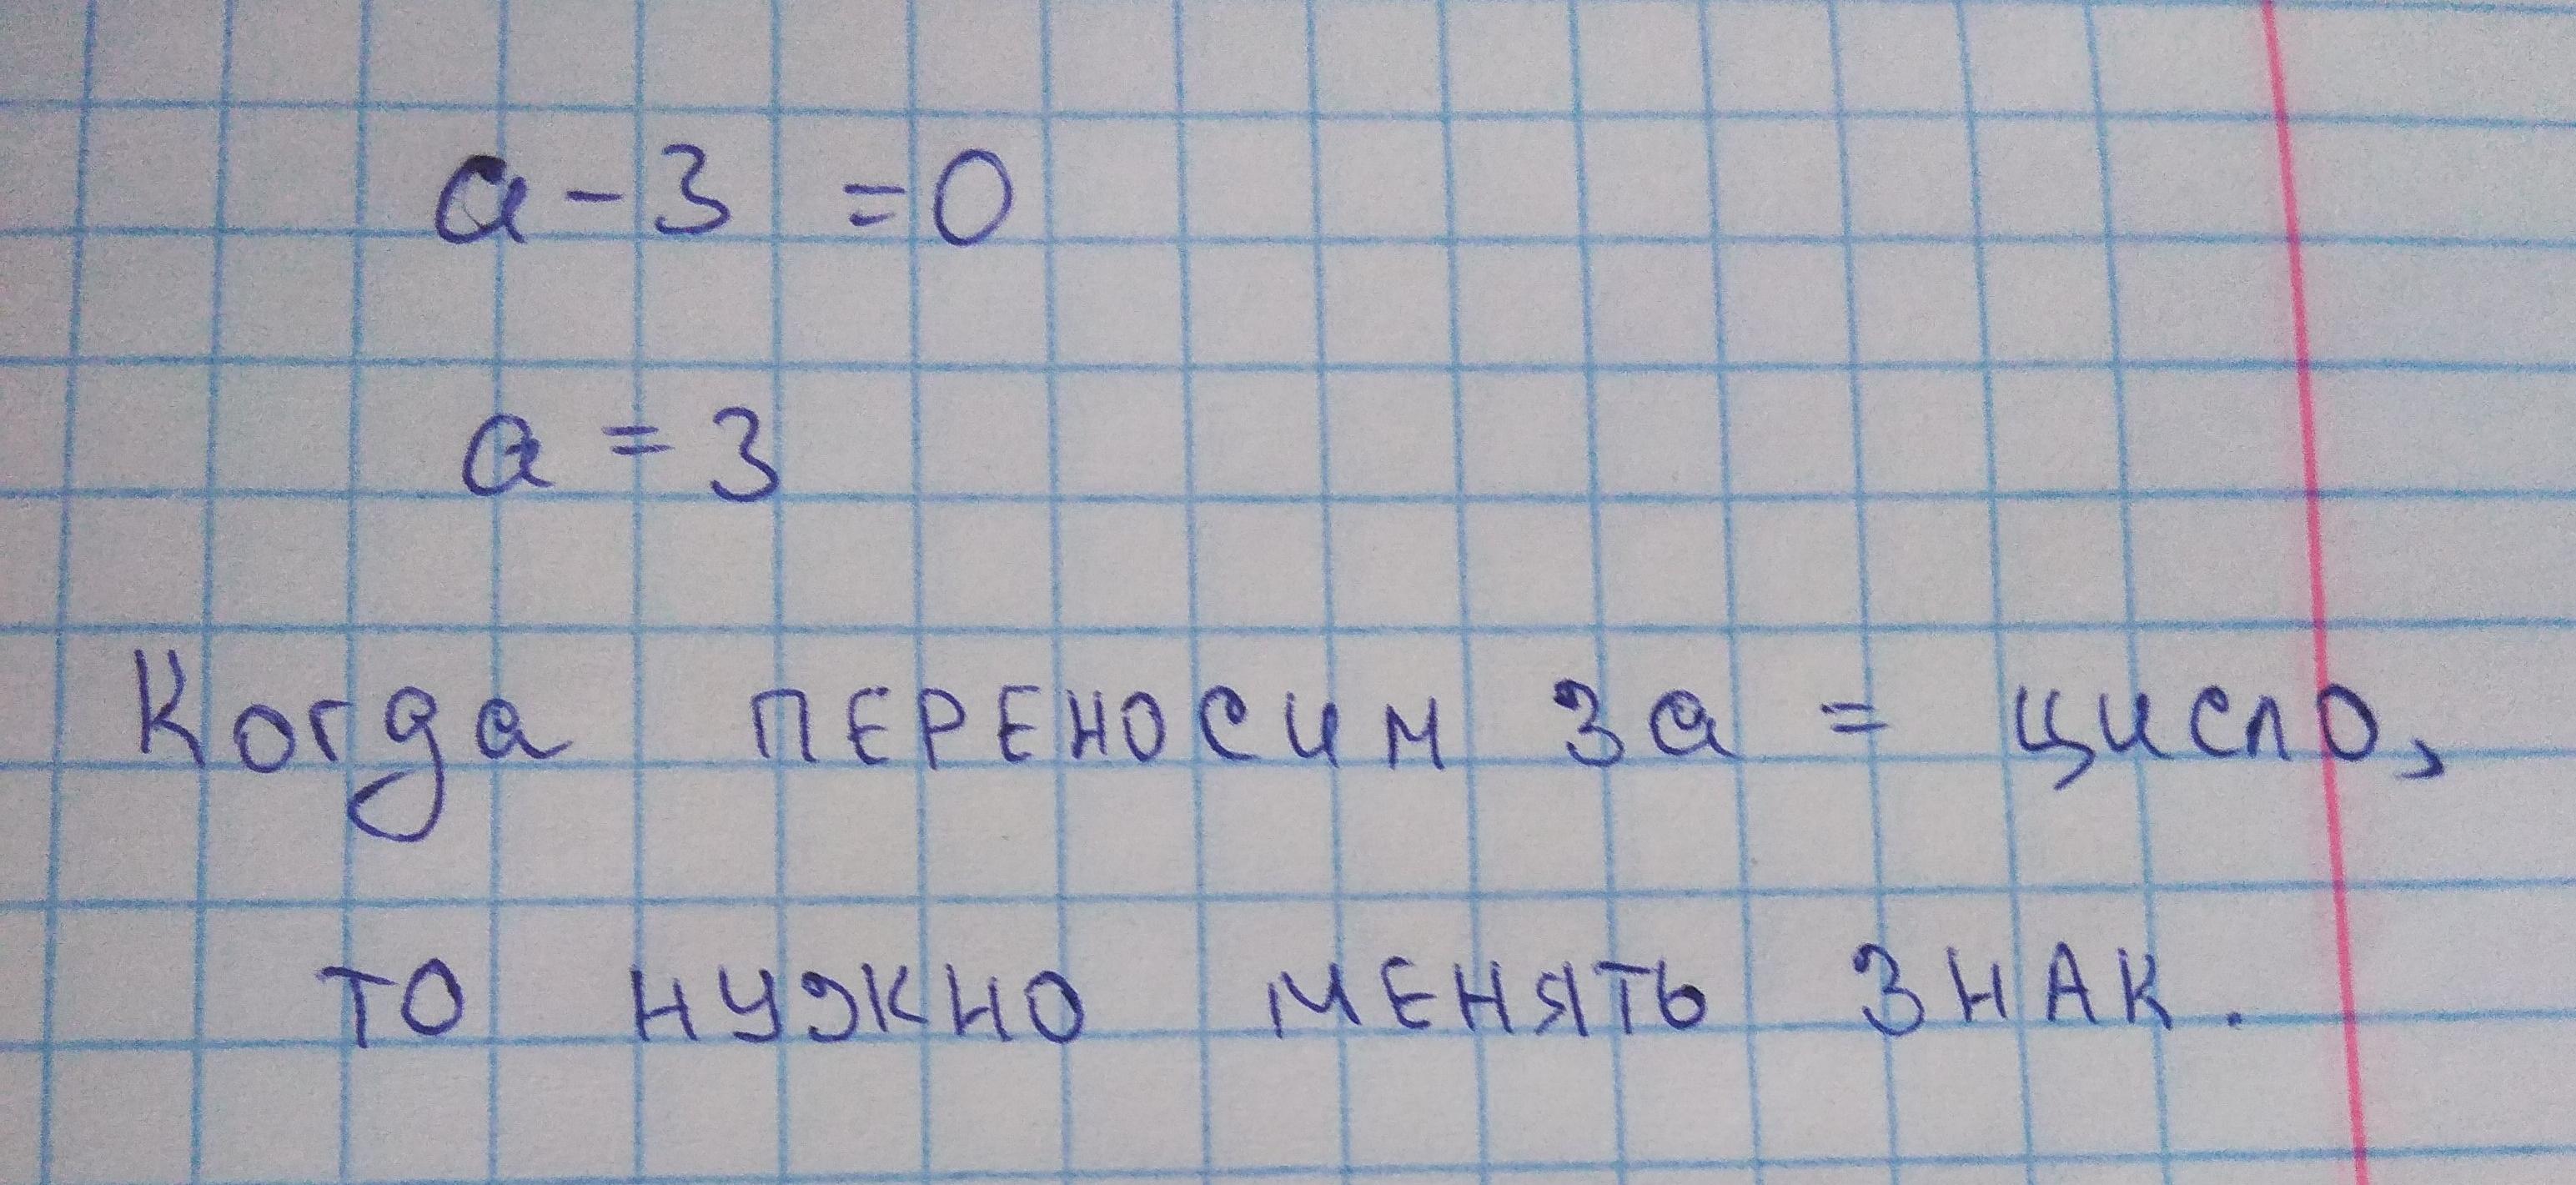 a - 3 = 0
a = 3
Когда ПЕРЕНОСИМ за = цисло,
ТО НУЖНО МЕНЯТЬ ЗНАК.